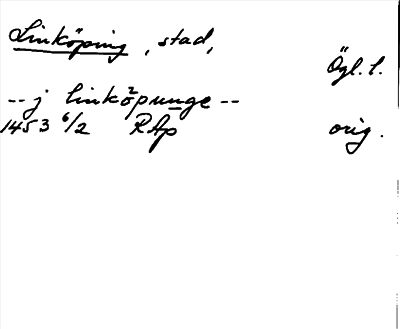 Linköping, stad,
Ögl. l.
-- j linköpunge --
1453 6/2 RAp orig.